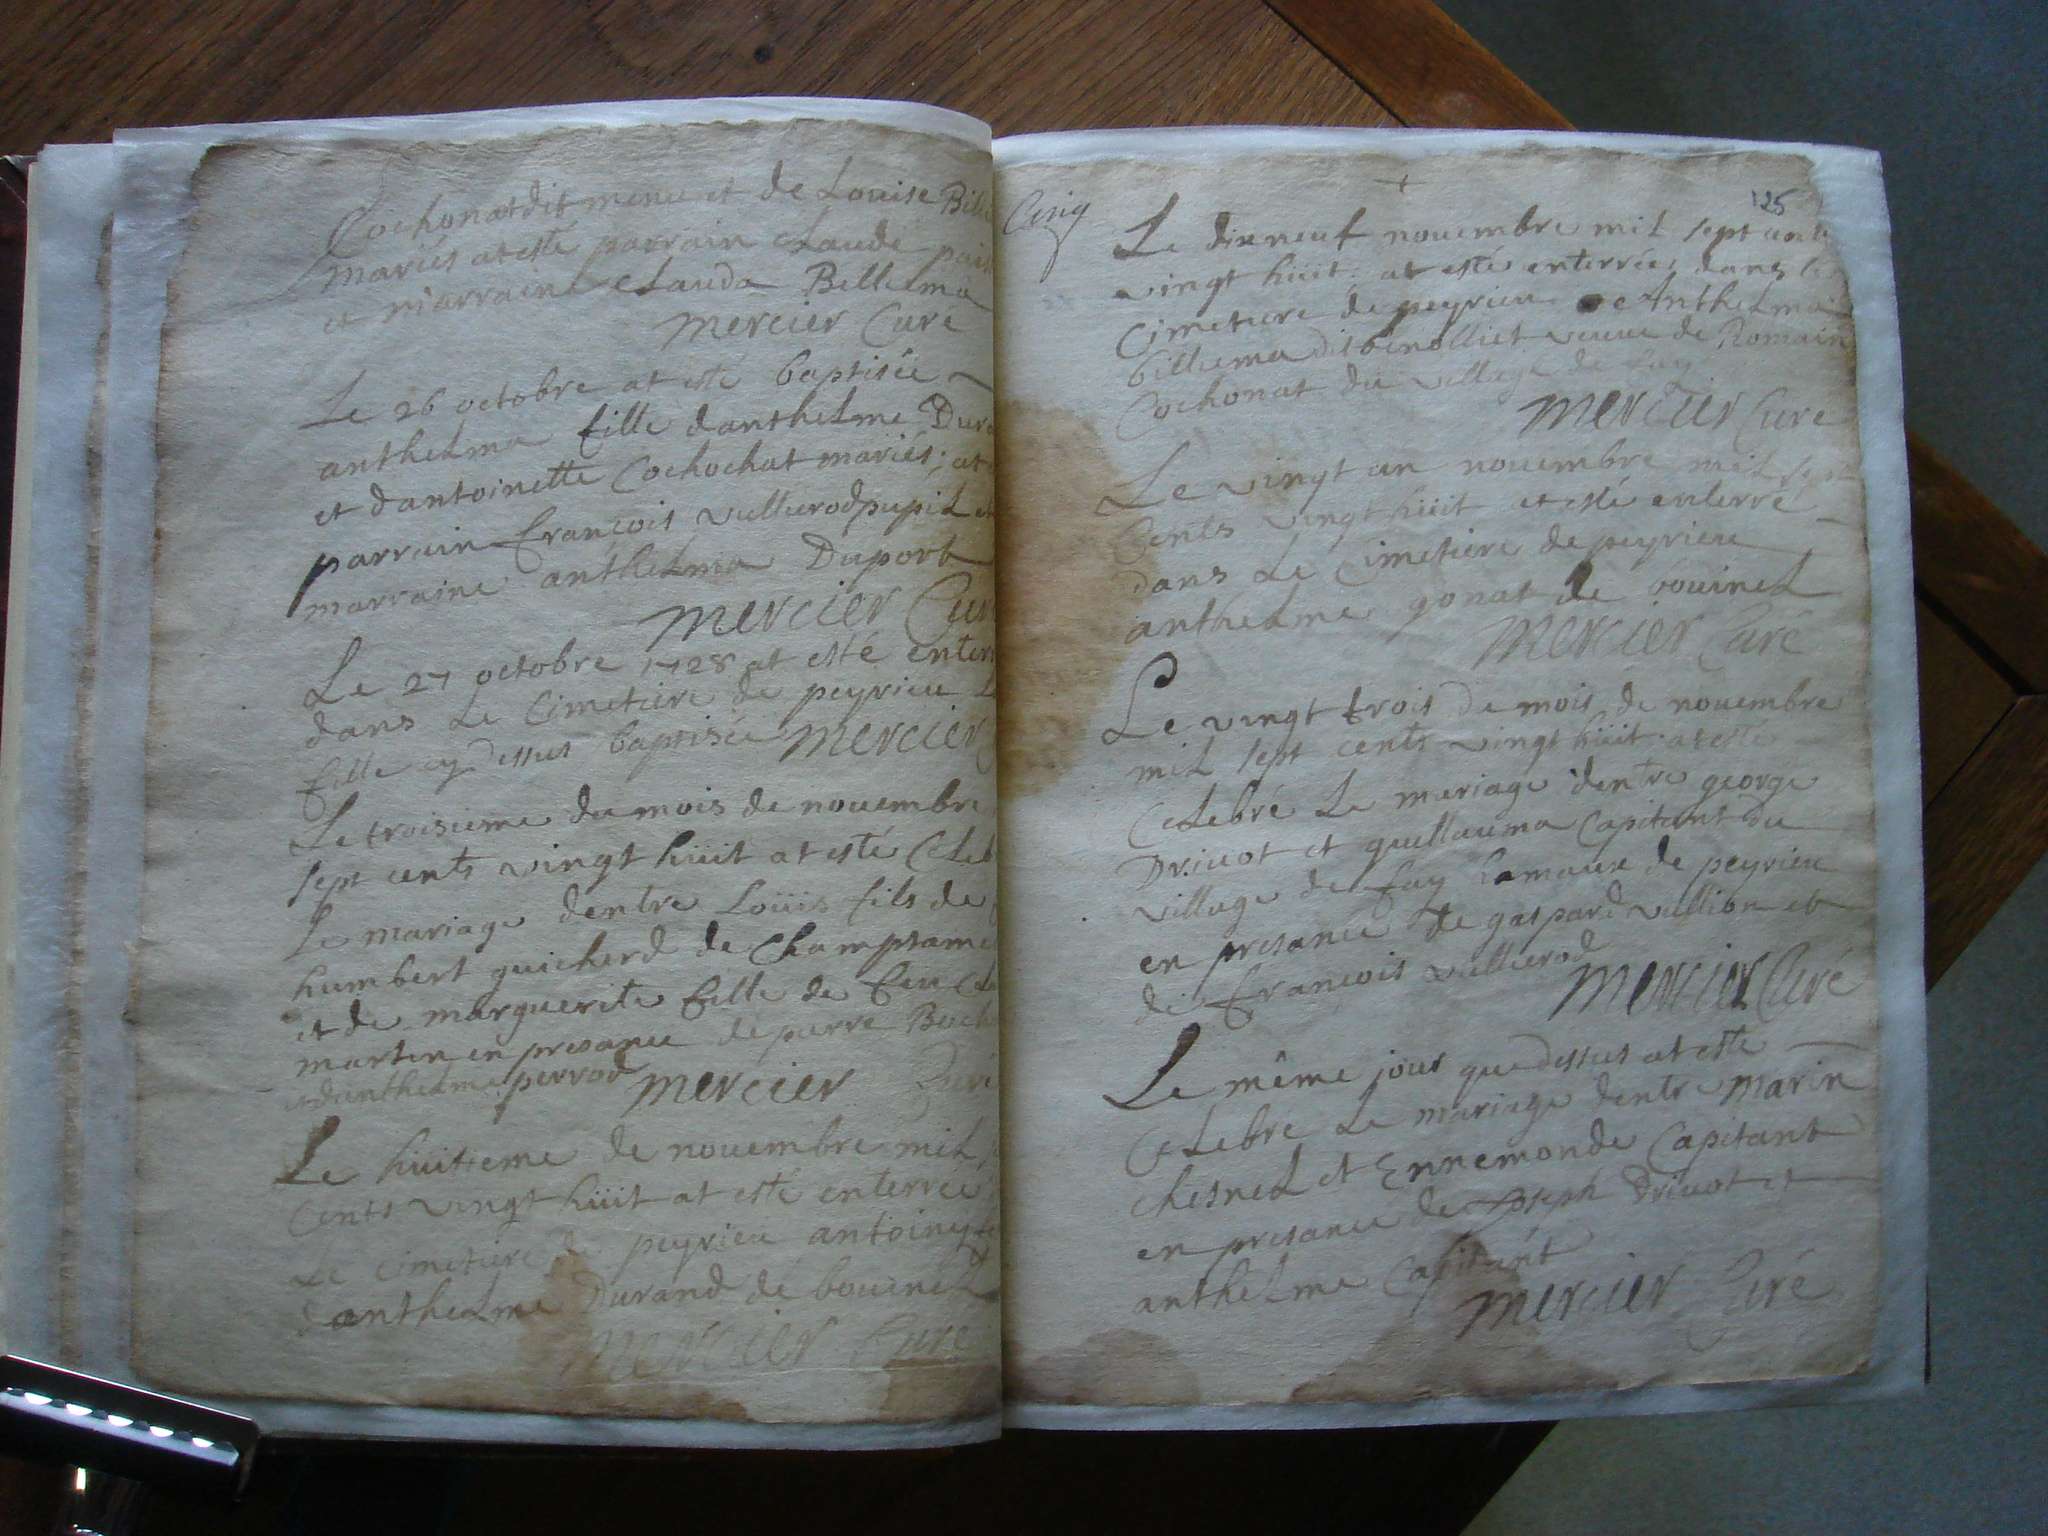 Cochonat dit menu et de Louise Bill
mariés at esté parrain claude
et marraine clauda Billema
mercier Curé
Le 26 octobre at esté baptisée
anthelma fille danthelme Dura
et dantoinette Cochochat mariés, at
parrain françois vullierod pupil et
marraine anthelma Duport
mercier Curé
Le 27 octobre 1728 at esté enterr
dans Le Cimetiere de peyrieu La
fille cy dessus baptisée mercier
Le troisieme du mois de nouembre
sept cents vingt hüit at esté Celeb
Le mariage dentre Loüis fils de
humbert guicherd de Champtame
et de marguerite fille de feu Cla
martin en presance de pierre Boch
et danthelme perrod mercier Curé
Le hüitieme de nouembre mil
Cents vingt hüit at esté enterrée
Le cimetiere de peyrieu antoine
danthelme Durand de bouinel
mercier Curé
Cinq
125
Le dix neuf nouembre mil sept cents
vingt hüit at esté enterrée dans le
Cimetiere de peyrieu Anthelma
billiema dit benolliet veuue de Romain
Cochonat du village de fay
mercier Curé
Le vingt un nouembre mil sept
Cents vingt hüit et esté enterré
dans Le Cimetiere de peyrieu
anthelme gonat de bouinel
mercier Curé
Le vingt trois du mois de nouembre
mil sept cents vingt hüit at esté
Celebré Le mariage dentre george
Driuot et guillauma Capitant du
village de fay hamaux de peyrieu
en presance de gaspard vullion et
de françois vullierod
mercier Curé
Le même jour que dessus at esté
Celebré Le mariage dentre marin
chesnel et Ennemonde Capitant
en presance de Joseph Driuot et
anthelme Capitant
mercier Curé